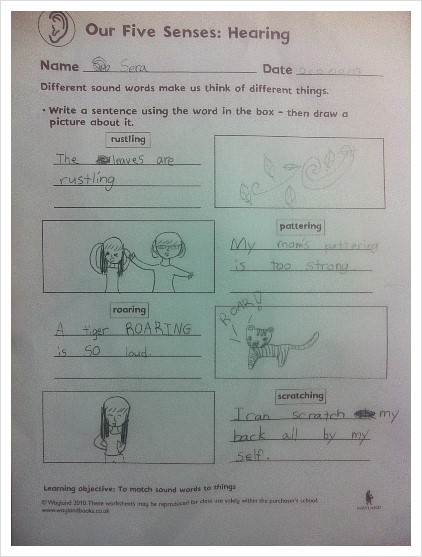 Our Five Senses: Hearing
Name Sera Date
Different sound words make us think of different things.
• Write a sentence using the word in the box – then draw a
picture about it.
rustling
The leaves are
rustling
pattering
My mom's pattering
is too strong.
roaring
A tiger ROARING
is so loud.
ROAR!
scratching
I can scratch my
back all by my
self.
Learning objective: To match sound words to things
© Wayland 2010 These worksheets may be reproduced for class use solely within the purchaser's school.
www.waylandbooks.co.uk
WAYLAND